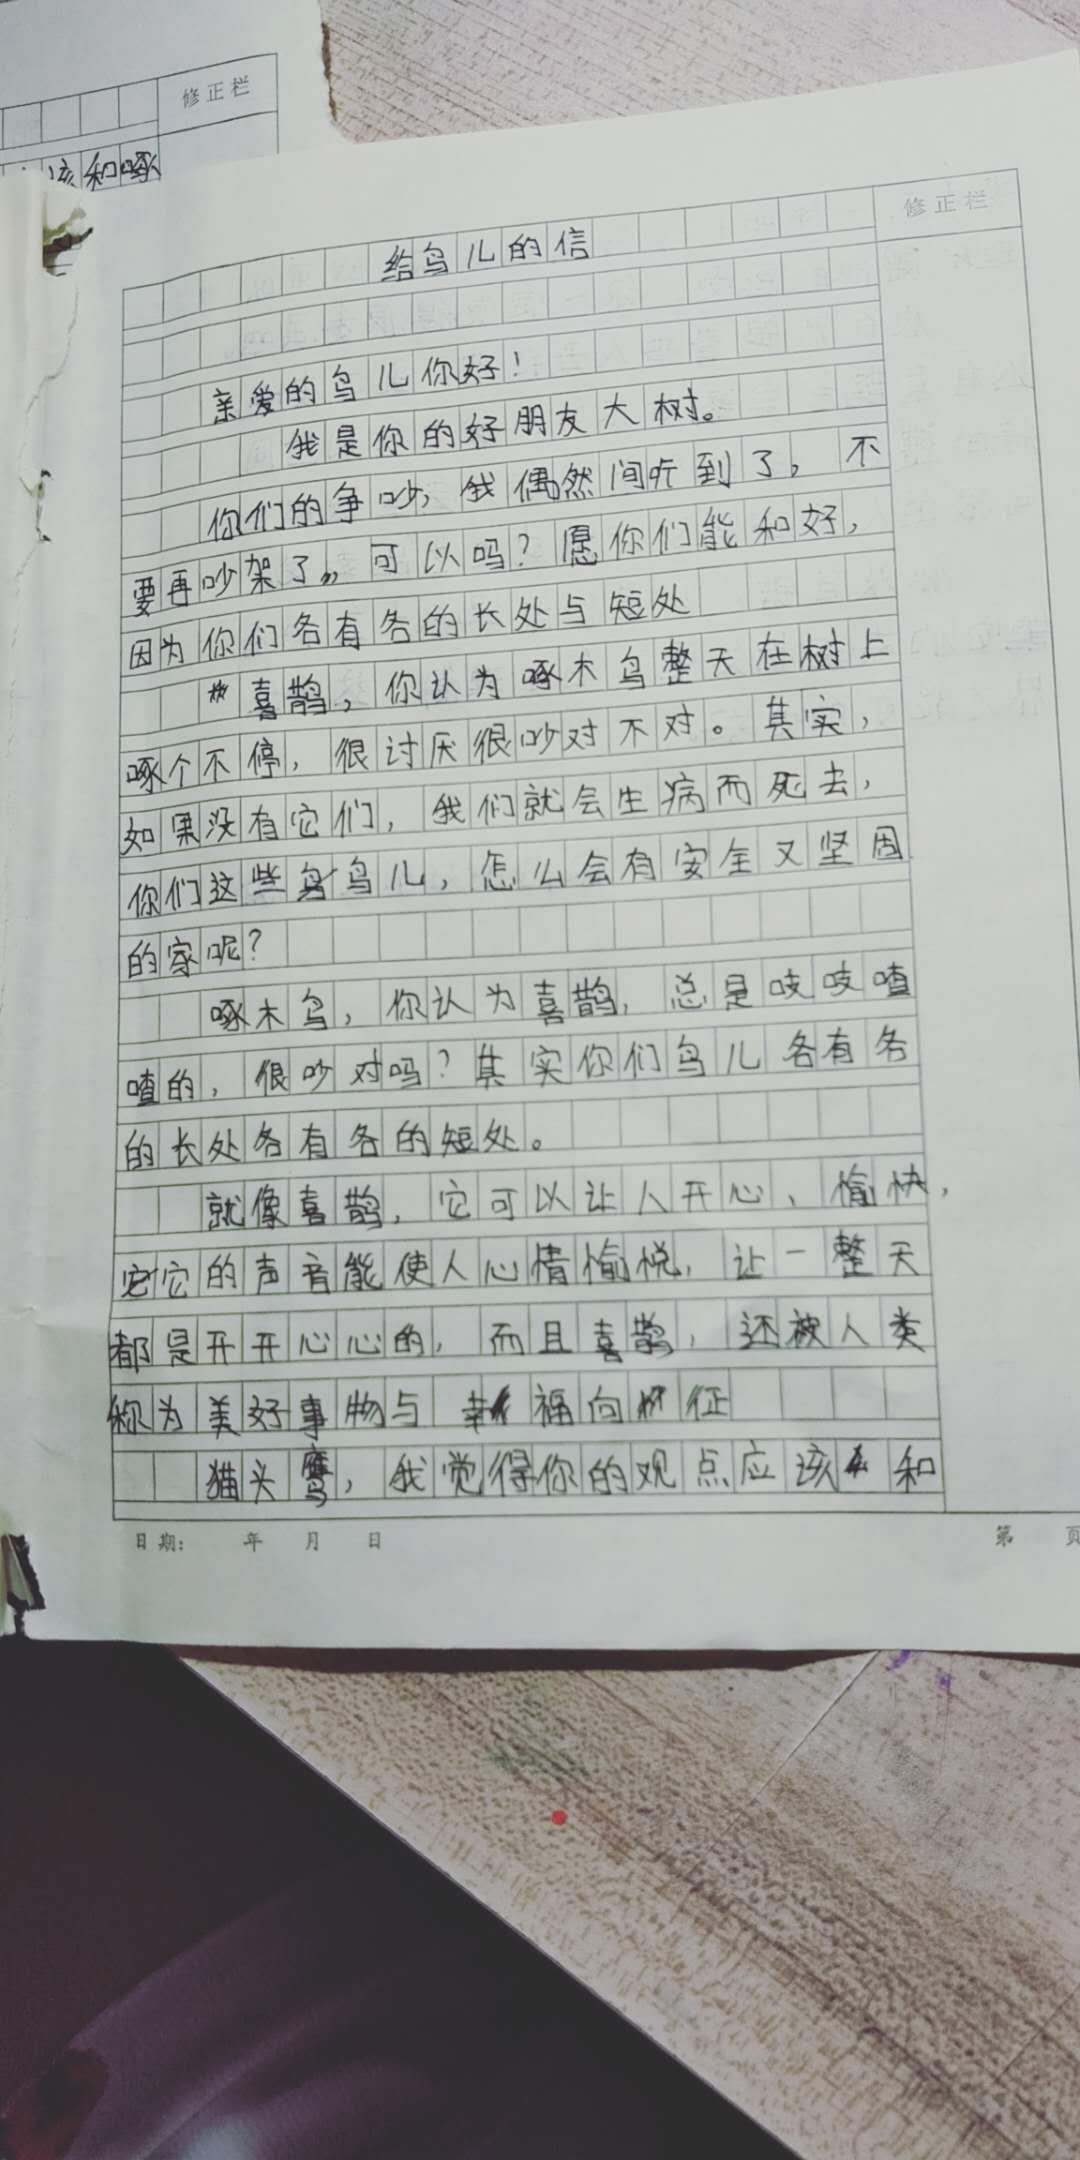 修正栏
该和啄
修正栏
给鸟儿的信
亲爱的鸟儿你好！
我是你的好朋友大树。
你们的争吵，我偶然间听到了，不
要再吵架了，可以吗？愿你们能和好，
因为你们各有各的长处与短处
喜鹊，你认为啄木鸟整天在树上
啄个不停，很讨厌很吵对不对。其实，
如果没有它们，我们就会生病而死去，
你们这些鸟儿，怎么会有安全又坚固
的家呢？
啄木鸟，你认为喜鹊，总是吱吱喳
喳的，很吵对吗？其实你们鸟儿各有各
的长处各有各的短处。
就像喜鹊，它可以让人开心、愉快，
它的声音能使人心情愉悦，让一整天
都是开开心心的，而且喜鹊，还被人类
称为美好事物与幸福向征
猫头鹰，我觉得你的观点应该和
日期： 年 月 日
第 页